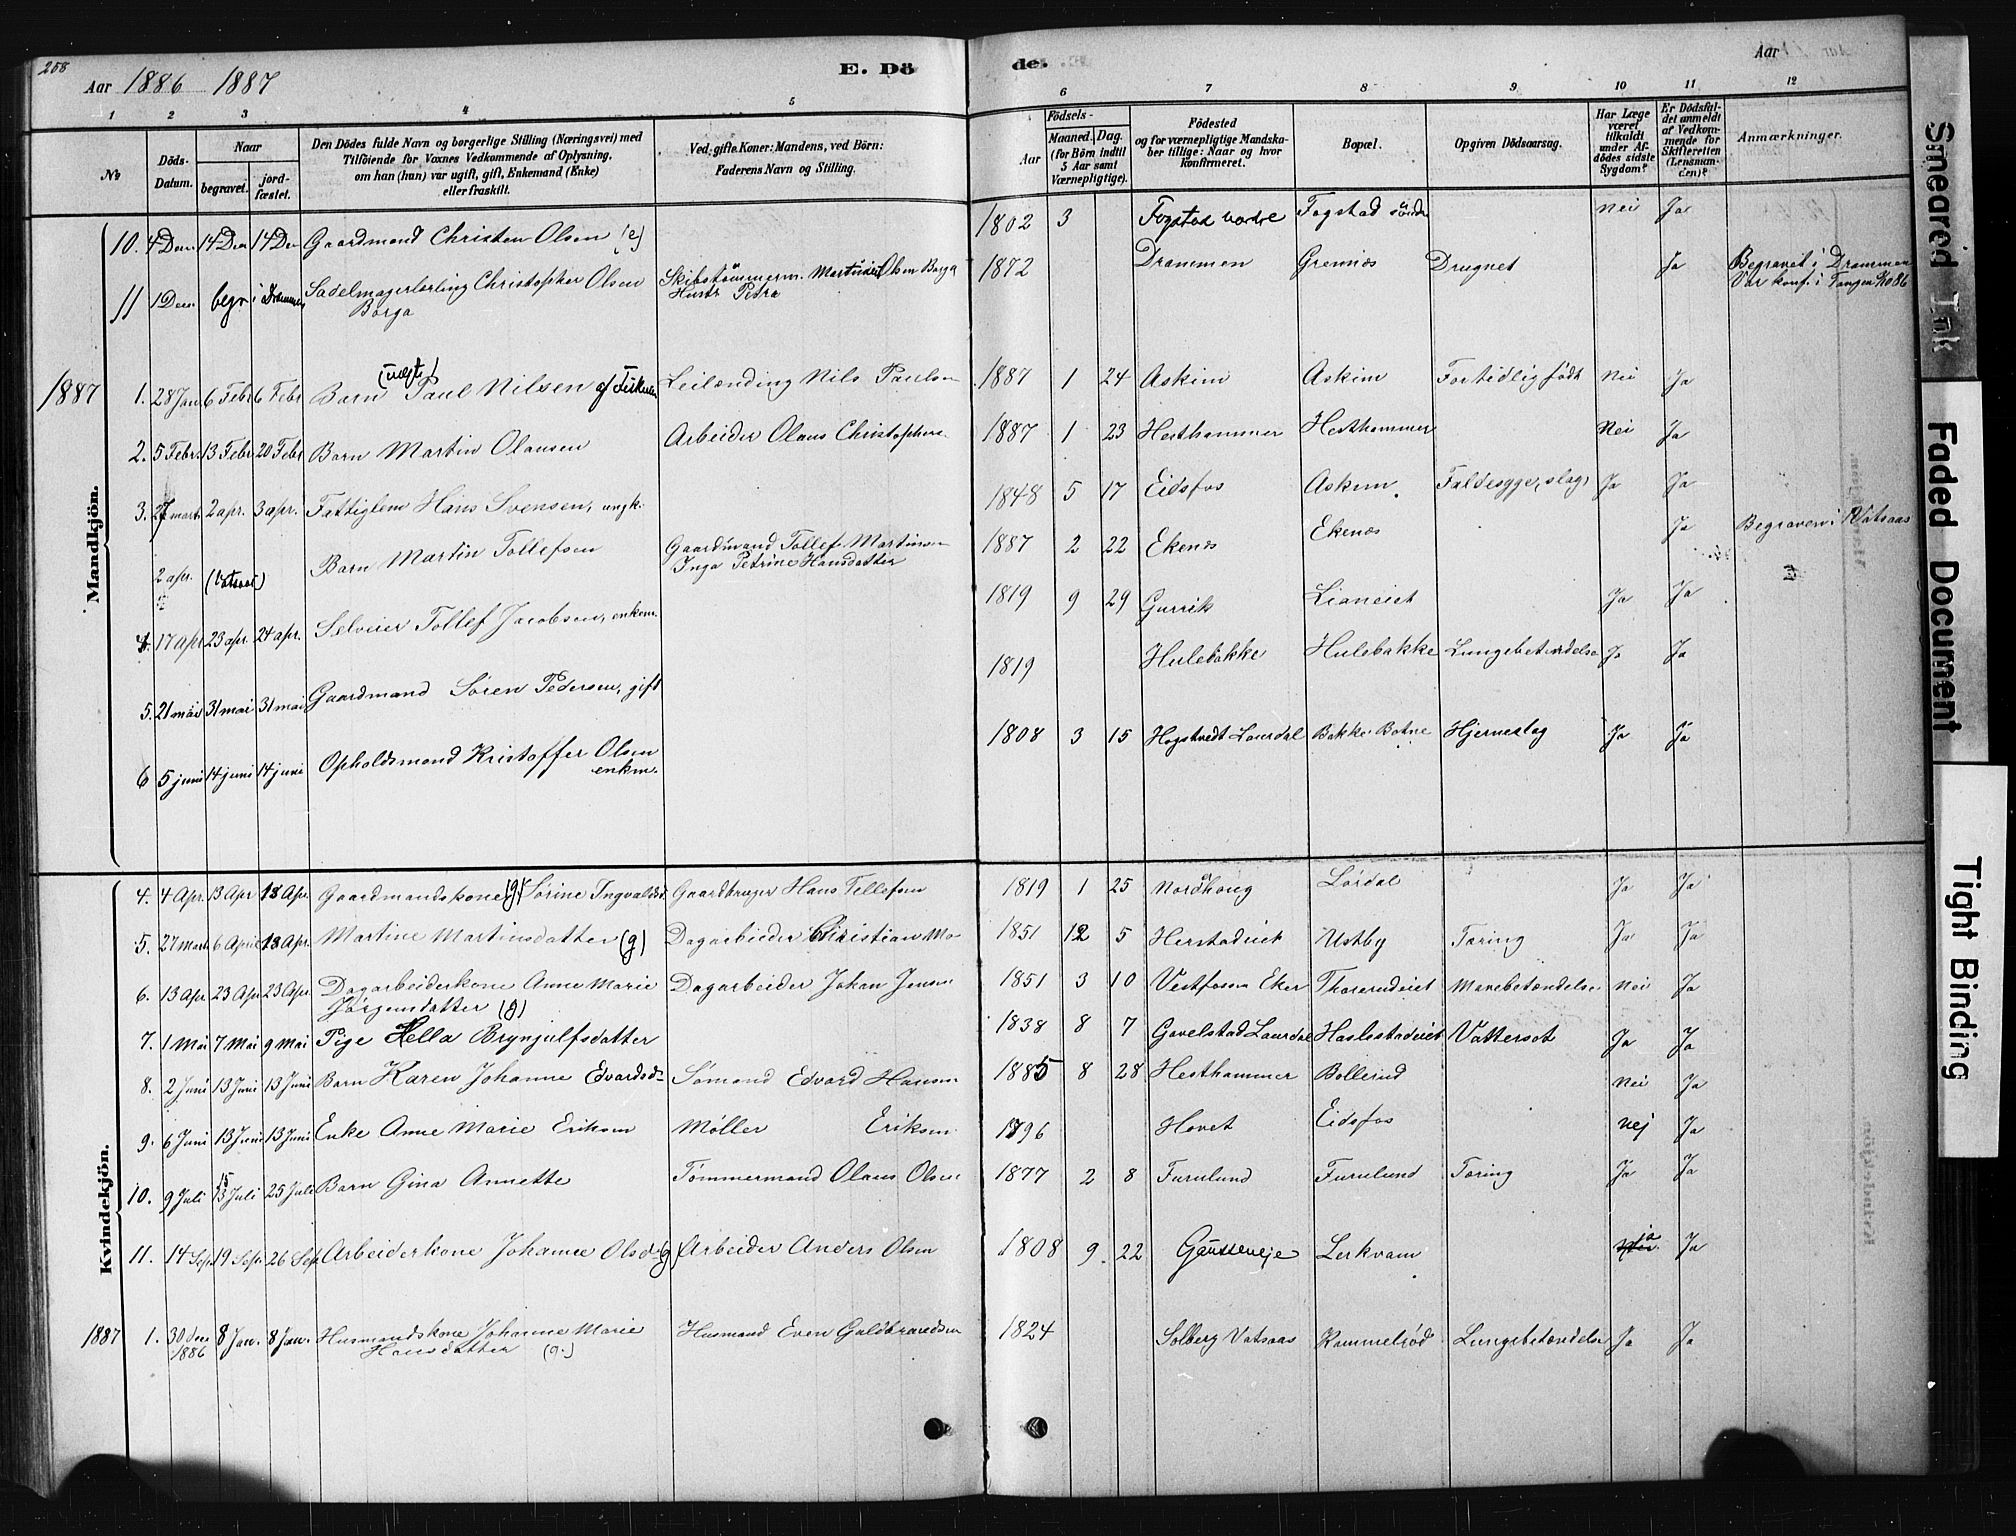 258
Aar 1886 1887
E. Dö
de.
Aar
1 2 3 4 5 6 7 8 9 10 11 12
No
Döds-Datum.
Naar
begravet.
jordfæstet.
Den Dödes fulde Navn og borgerlige Stilling (Næringsvei) med
Tilföiende for Voxnes Vedkommende af Oplysning,
om han (hun) var ugift, gift, Enkemand (Enke)
eller fraskilt.
Ved gifte Koner: Mandens, ved Börn:
Faderens Navn og Stilling.
Födsels-
Aar
Maaned. Dag.
(for Börn indtil
5 Aar samt
Værnepligtige).
Födested
og for værnepligtige Mandskaber tillige: Naar og hvor
konfirmeret.
Bopæl.
Opgiven Dödsaarsag.
Har Læge
været
tilkaldt
under Afdödes sidste
Sygdom?
Er Dödsfaldet anmeldt
af Vedkommende for
Skifteretten
(Lensmanden)?
Anmærkninger.
Mandkjön.
10. 4 Dec 14 Dec 14 Dec Gaardmand Christen Olsen (e) 1802 3 Fogstad nordre Fogstad söndre nei Ja
11 1 Decr begr i Drammen Sadelmagerlærling Christopher Olsen Borga Skibstömmerm. Martinius Olsen Borga Hustr Petra 1872 Drammen Grennes Drugnet Ja Begravet i Drammen Var konf. i Tangen Ko 86
1887
1. 28 Jan 6 Febr 6 Febr Barn (uægte) Paul Nilsen Leilænding Nils Paulsen 1887 1 24 Askim Askim For tidlig födt Nei Ja
2. 5 Febr. 13 Febr 20 Febr Barn Martin Olausen Arbeider Olaus Christophers. 1887 1 23 Hesthammer Hesthammer Nei Ja
3. 27 marts 2 apr. 3 apr. Fattiglem Hans Svensen, ungk. 1848 5 17 Eidsfos Askim Faldesyge, slag Ja Ja
2 apr. (Vatsaas) Barn Martin Tollefsen Gaardmand Tollef Martinsen Inga Petrine Hansdatter 1887 2 22 Ekenes Ekenes Ja Begraven i Vatsaas
4. 17 apr 23 apr. 24 apr. Selveier Tollef Jacobsen, enkem. 1819 9 29 Gurrik Lianeiet Ja Ja
5. 21 mai 31 mai 31 mai Gaardmand Sören Pedersen, gift 1819 Hulebakke Hulebakke Lungebetændelse Ja Ja
6 5 juni 14 juni 14 juni Opholdsmand Kristoffer Olsen enkm. 1808 3 15 Hogstvedt Laurdal Bakke Botne Hjerneslag Ja Ja
Kvindekjön.
4. 4 Apr. 13 Apr 18 Apr. Gaardmandskone (g) Sörine Ingvaldsd. Gaardbruger Hans Tellefsen 1819 1 25 Nordhoug Lördal Ja Ja
5. 27 Mart 6 April 13 Apr. Martine Martinsdatter (g) Dagarbieder Christian Mo 1851 12 5 Herstadeiet Ustby Tæring Ja Ja
6. 13 Apr 23 Apr 23 Apr. Dagarbeiderkone Anne Marie Jörgensdatter (g) Dagarbeider Johan Jensen 1851 3 10 Vestfossen Eker Thorerudeiet Mavebetændelse nei Ja
7. 1 Mai 7 Mai 9 Mai Pige Hella Brynjulfsdatter 1838 8 7 Gavelstad Laurdal Haslestadeiet Vattersot Ja Ja
8. 2 Juni 13 Juni 13 Juni Barn Karen Johanne Edvardsd. Sömand Edvard Hansen 1885 8 28 Hesthammer Bollerud nei Ja
9. 6 Juni 13 Juni 13 Juni Enke Anne Marie Eriksen Møller Eriksen 1796 Hovet Eidsfos nej Ja
10. 9 Juli 15 Juli 25 Juli Barn Gina Annette Tømmermand Olaus Olsen 1877 2 8 Furulund Furulund Tæring Ja Ja
11. 14 Sep. 19 Sep. 26 Sep. Arbeiderkone Johanne Olsd. (g) Arbeider Anders Olsen 1808 9 22 Lerkvam ja Ja
1887 1. 30 Dec 1886 8 Jan. 8 Jan. Husmandskone Johanne Marie Hansdatter (g.) Husmand Even Guldbrandsen 1824 Solberg Vatsaas Kammelröd Lungebetændelse Ja Ja
Smeared Ink
Faded Document
Tight Binding